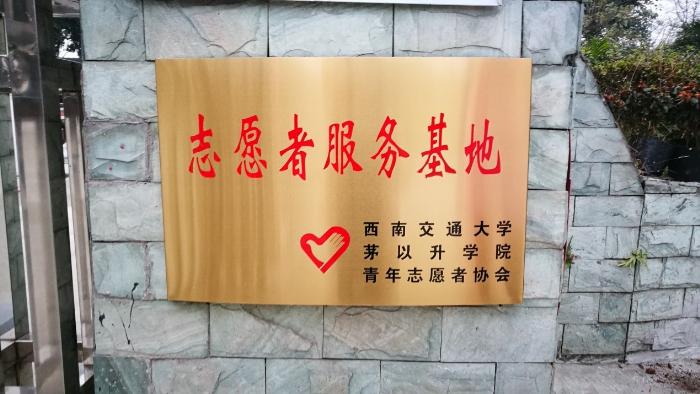 志愿者服务基地
西南交通大学
茅以升学院
青年志愿者协会